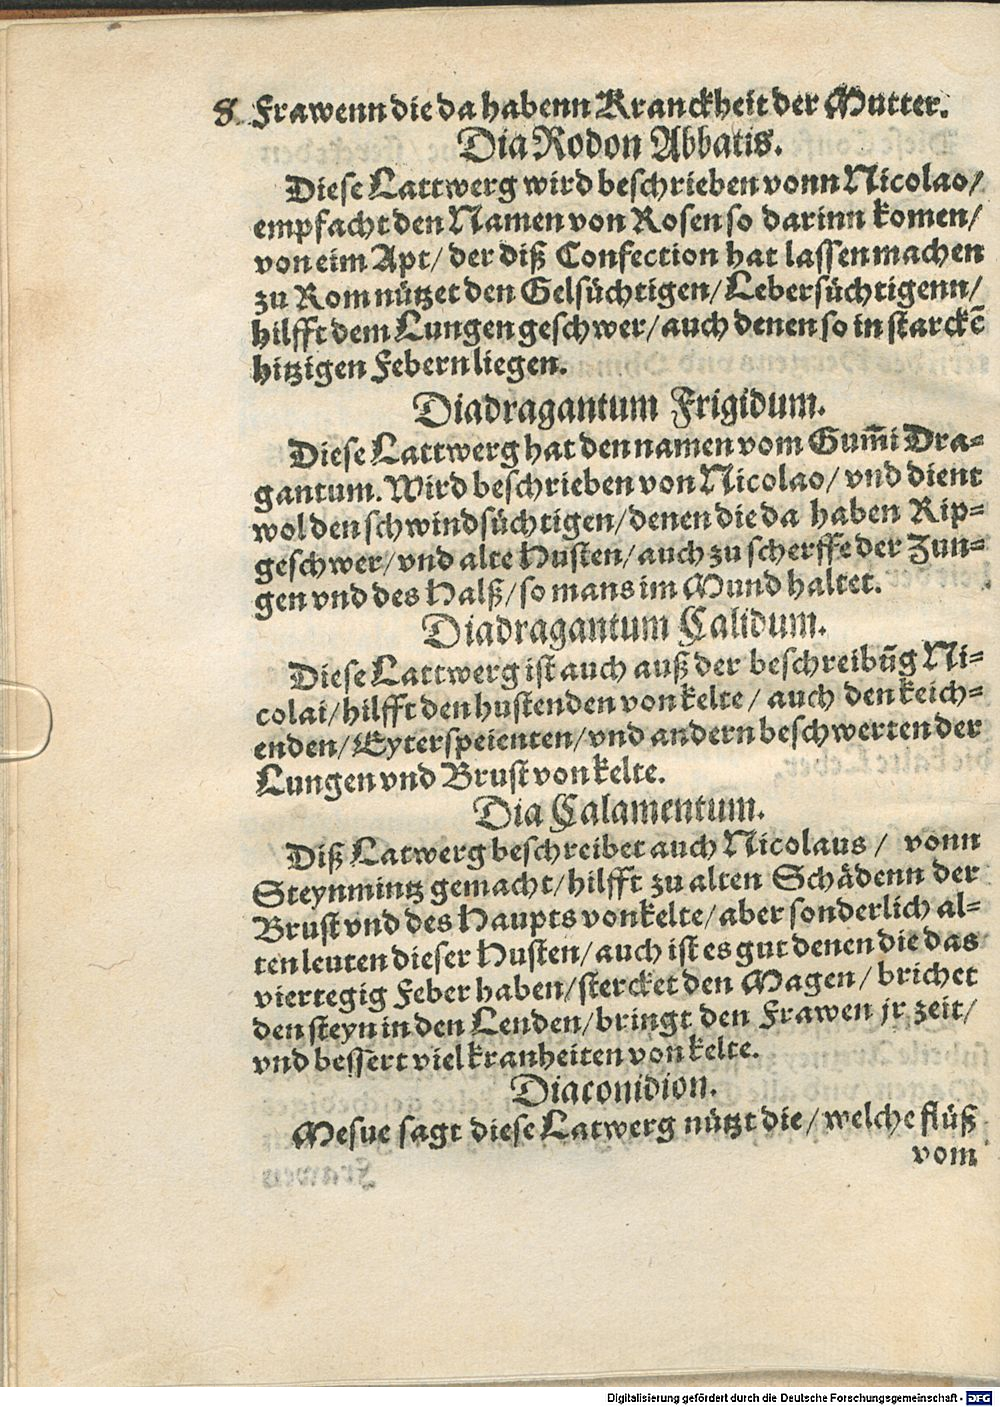 8. Frawenn die da habenn Kranckheit der Mutter.
Dia Rodon Abbatis.
Diese Lattwerg wird beschrieben vonn Nicolao/
empfacht den Namen von Rosen so darinn komen/
von eim Apt/ der diß Confection hat lassen machen
zu Rom nützet den Gelsüchtigen/ Lebersüchtigenn/
hilfft dem Lungen geschwer/ auch denen so in starckē
hitzigen Febern liegen.
Diadragantum Frigidum.
Diese Lattwerg hat den namen vom Gum̄i Dra-
gantum. Wird beschrieben von Nicolao/ vnd dient
wol den schwindsüchtigen/ denen die da haben Rip-
geschwer/ vnd alte Husten/ auch zu scherffe der Zun-
gen vnd des Halß/ so mans im Mund haltet.
Diadragantum Calidum.
Diese Lattwerg ist auch auß der beschreibūg Ni-
colai/ hilfft den hustenden von kelte/ auch den keich-
enden/ Eyterspeienten/ vnd andern beschwerten der
Lungen vnd Brust von kelte.
Dia Calamentum.
Diß Latwerg beschreibet auch Nicolaus/ vonn
Steynmintz gemacht/ hilfft zu alten Schädenn der
Brust vnd des Haupts von kelte/ aber sonderlich al-
ten leuten dieser Husten/ auch ist es gut denen die das
viertegig Feber haben/ stercket den Magen/ brichet
den steyn in den Lenden/ bringt den Frawen jr zeit/
vnd bessert viel kranheiten von kelte.
Diaconidion.
Mesue sagt diese Latwerg nützt die/ welche flüß
vom
Digitalisierung gefördert durch die Deutsche Forschungsgemeinschaft - DFG